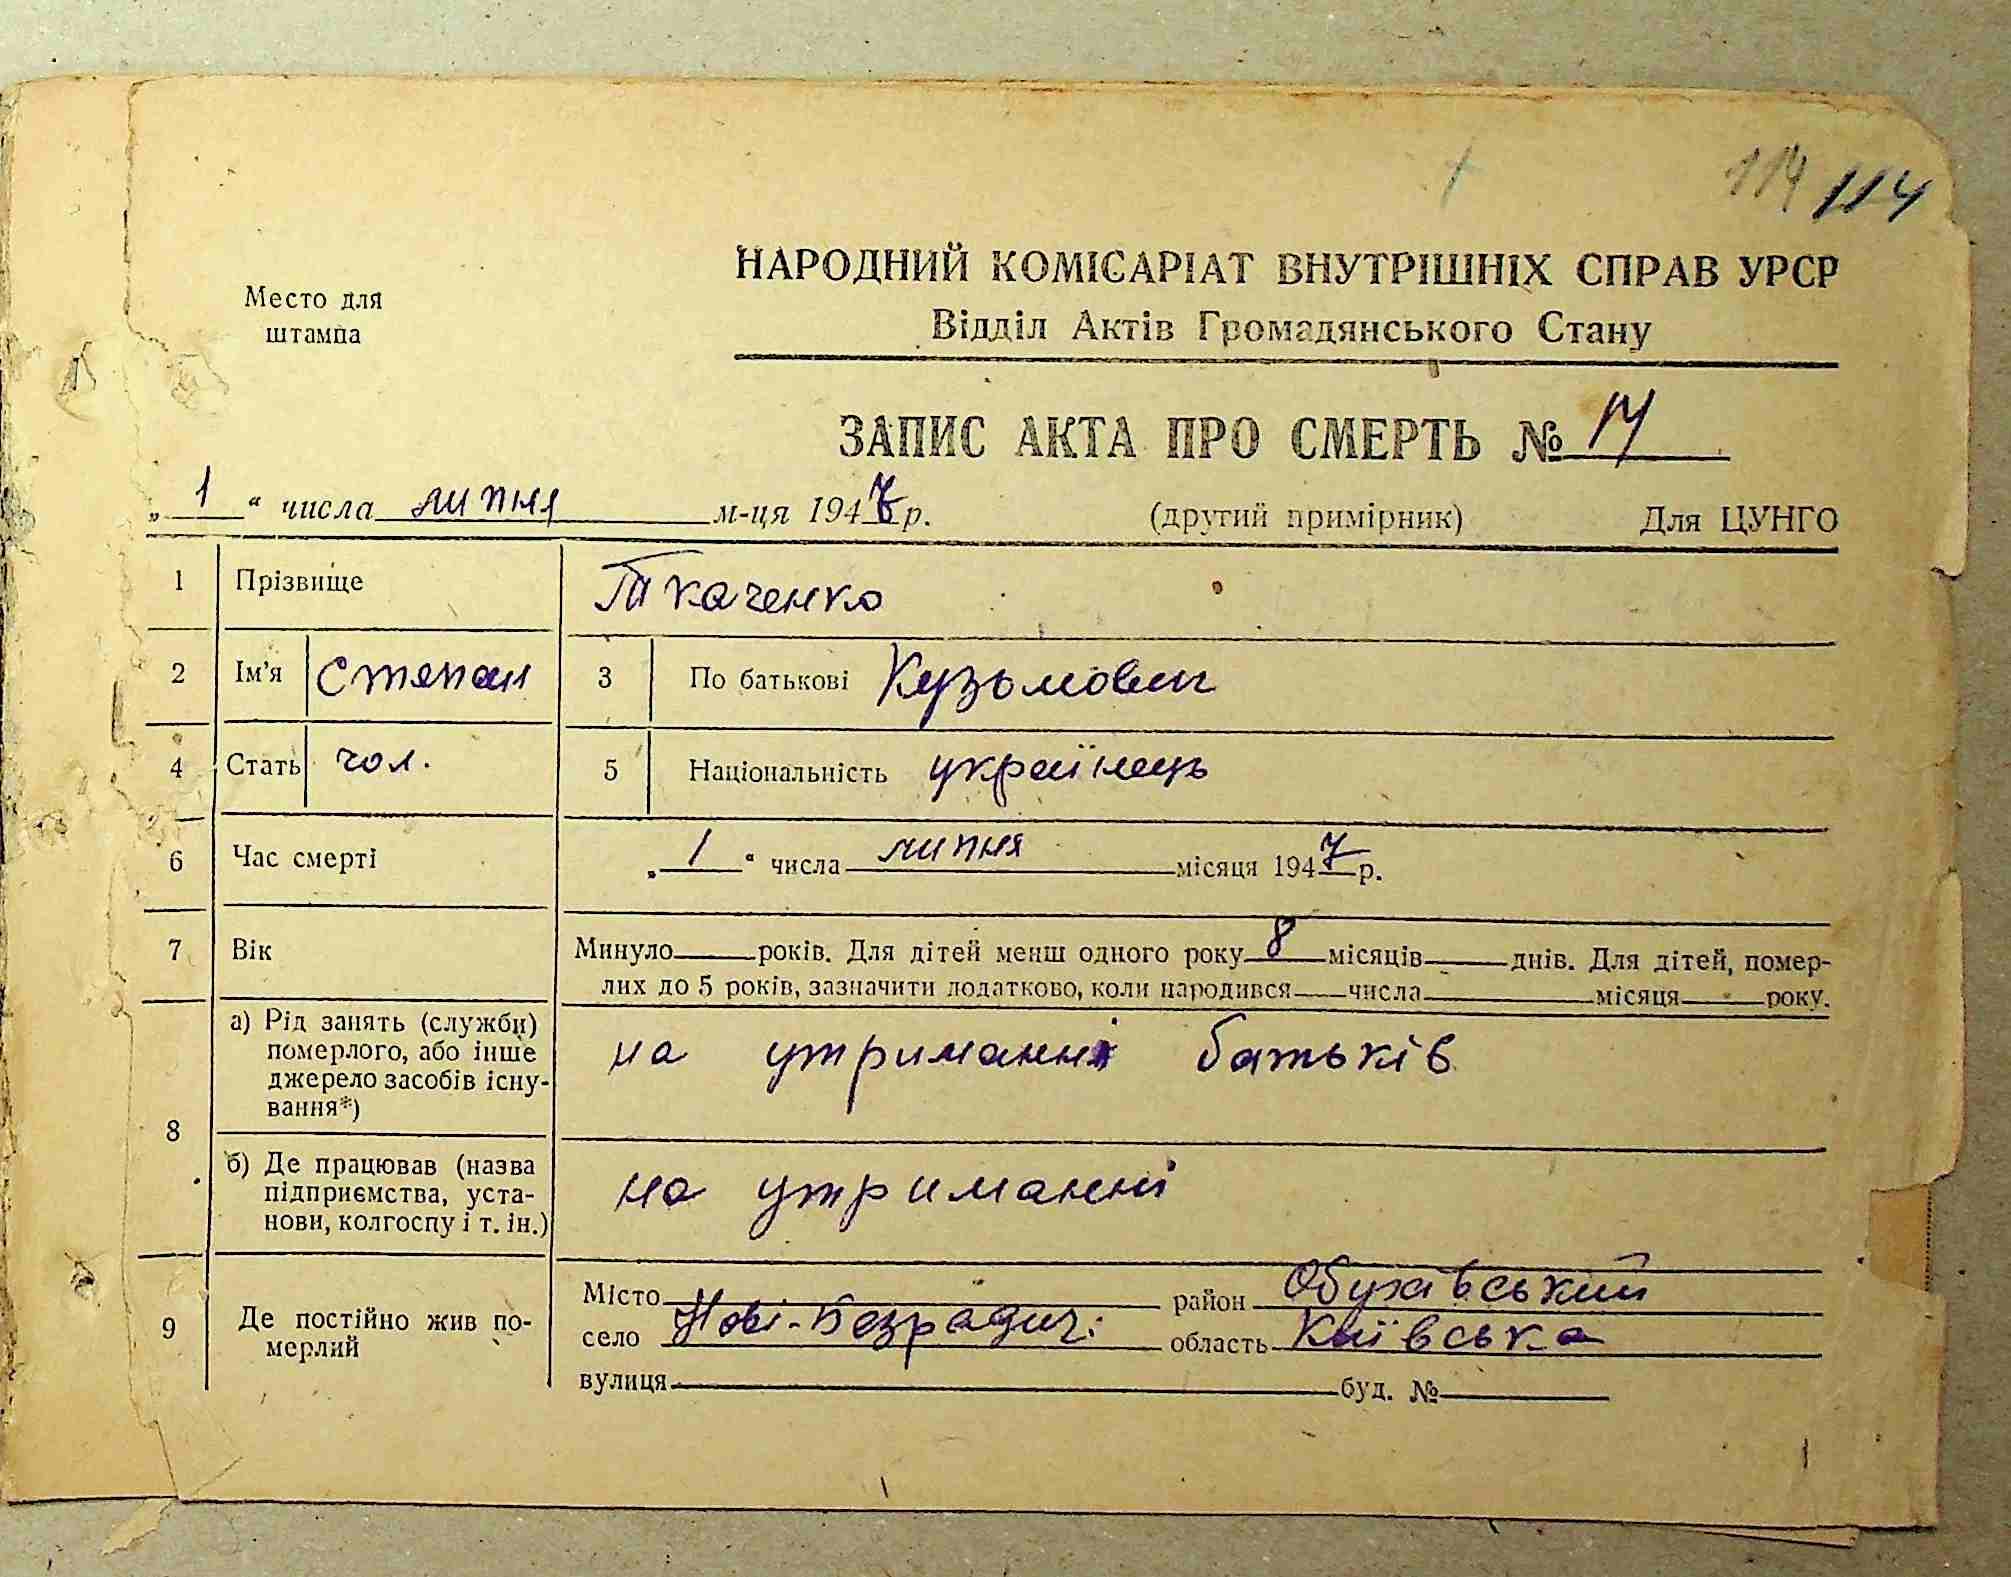 114 114
НАРОДНИЙ КОМІСАРІАТ ВНУТРІШНІХ СПРАВ УРСР
Место для
штампа
Відділ Актів Громадянського Стану
ЗАПИС АКТА ПРО СМЕРТЬ № 14
„ 1 “ числа липня м-ця 1947 р. (другий примірник) Для ЦУНГО
1 Прізвище Ткаченко
2 Ім'я Степан 3 По батькові Кузьмович
4 Стать чол. 5 Національність українець
6 Час смерті „ 1 “ числа липня місяця 1947 р.
7 Вік Минуло років. Для дітей менш одного року 8 місяців днів. Для дітей, помер-
лих до 5 років, зазначити додатково, коли народився числа місяця року.
8 а) Рід занять (служби)
померлого, або інше
джерело засобів існу-
вання*)
на утриманні батьків
б) Де працював (назва
підприємства, уста-
нови, колгоспу і т. ін.)
на утриманні
9 Де постійно жив по-
мерлий
Місто район Обухівський
село Нові-Безрадичі область Київська
вулиця буд. №